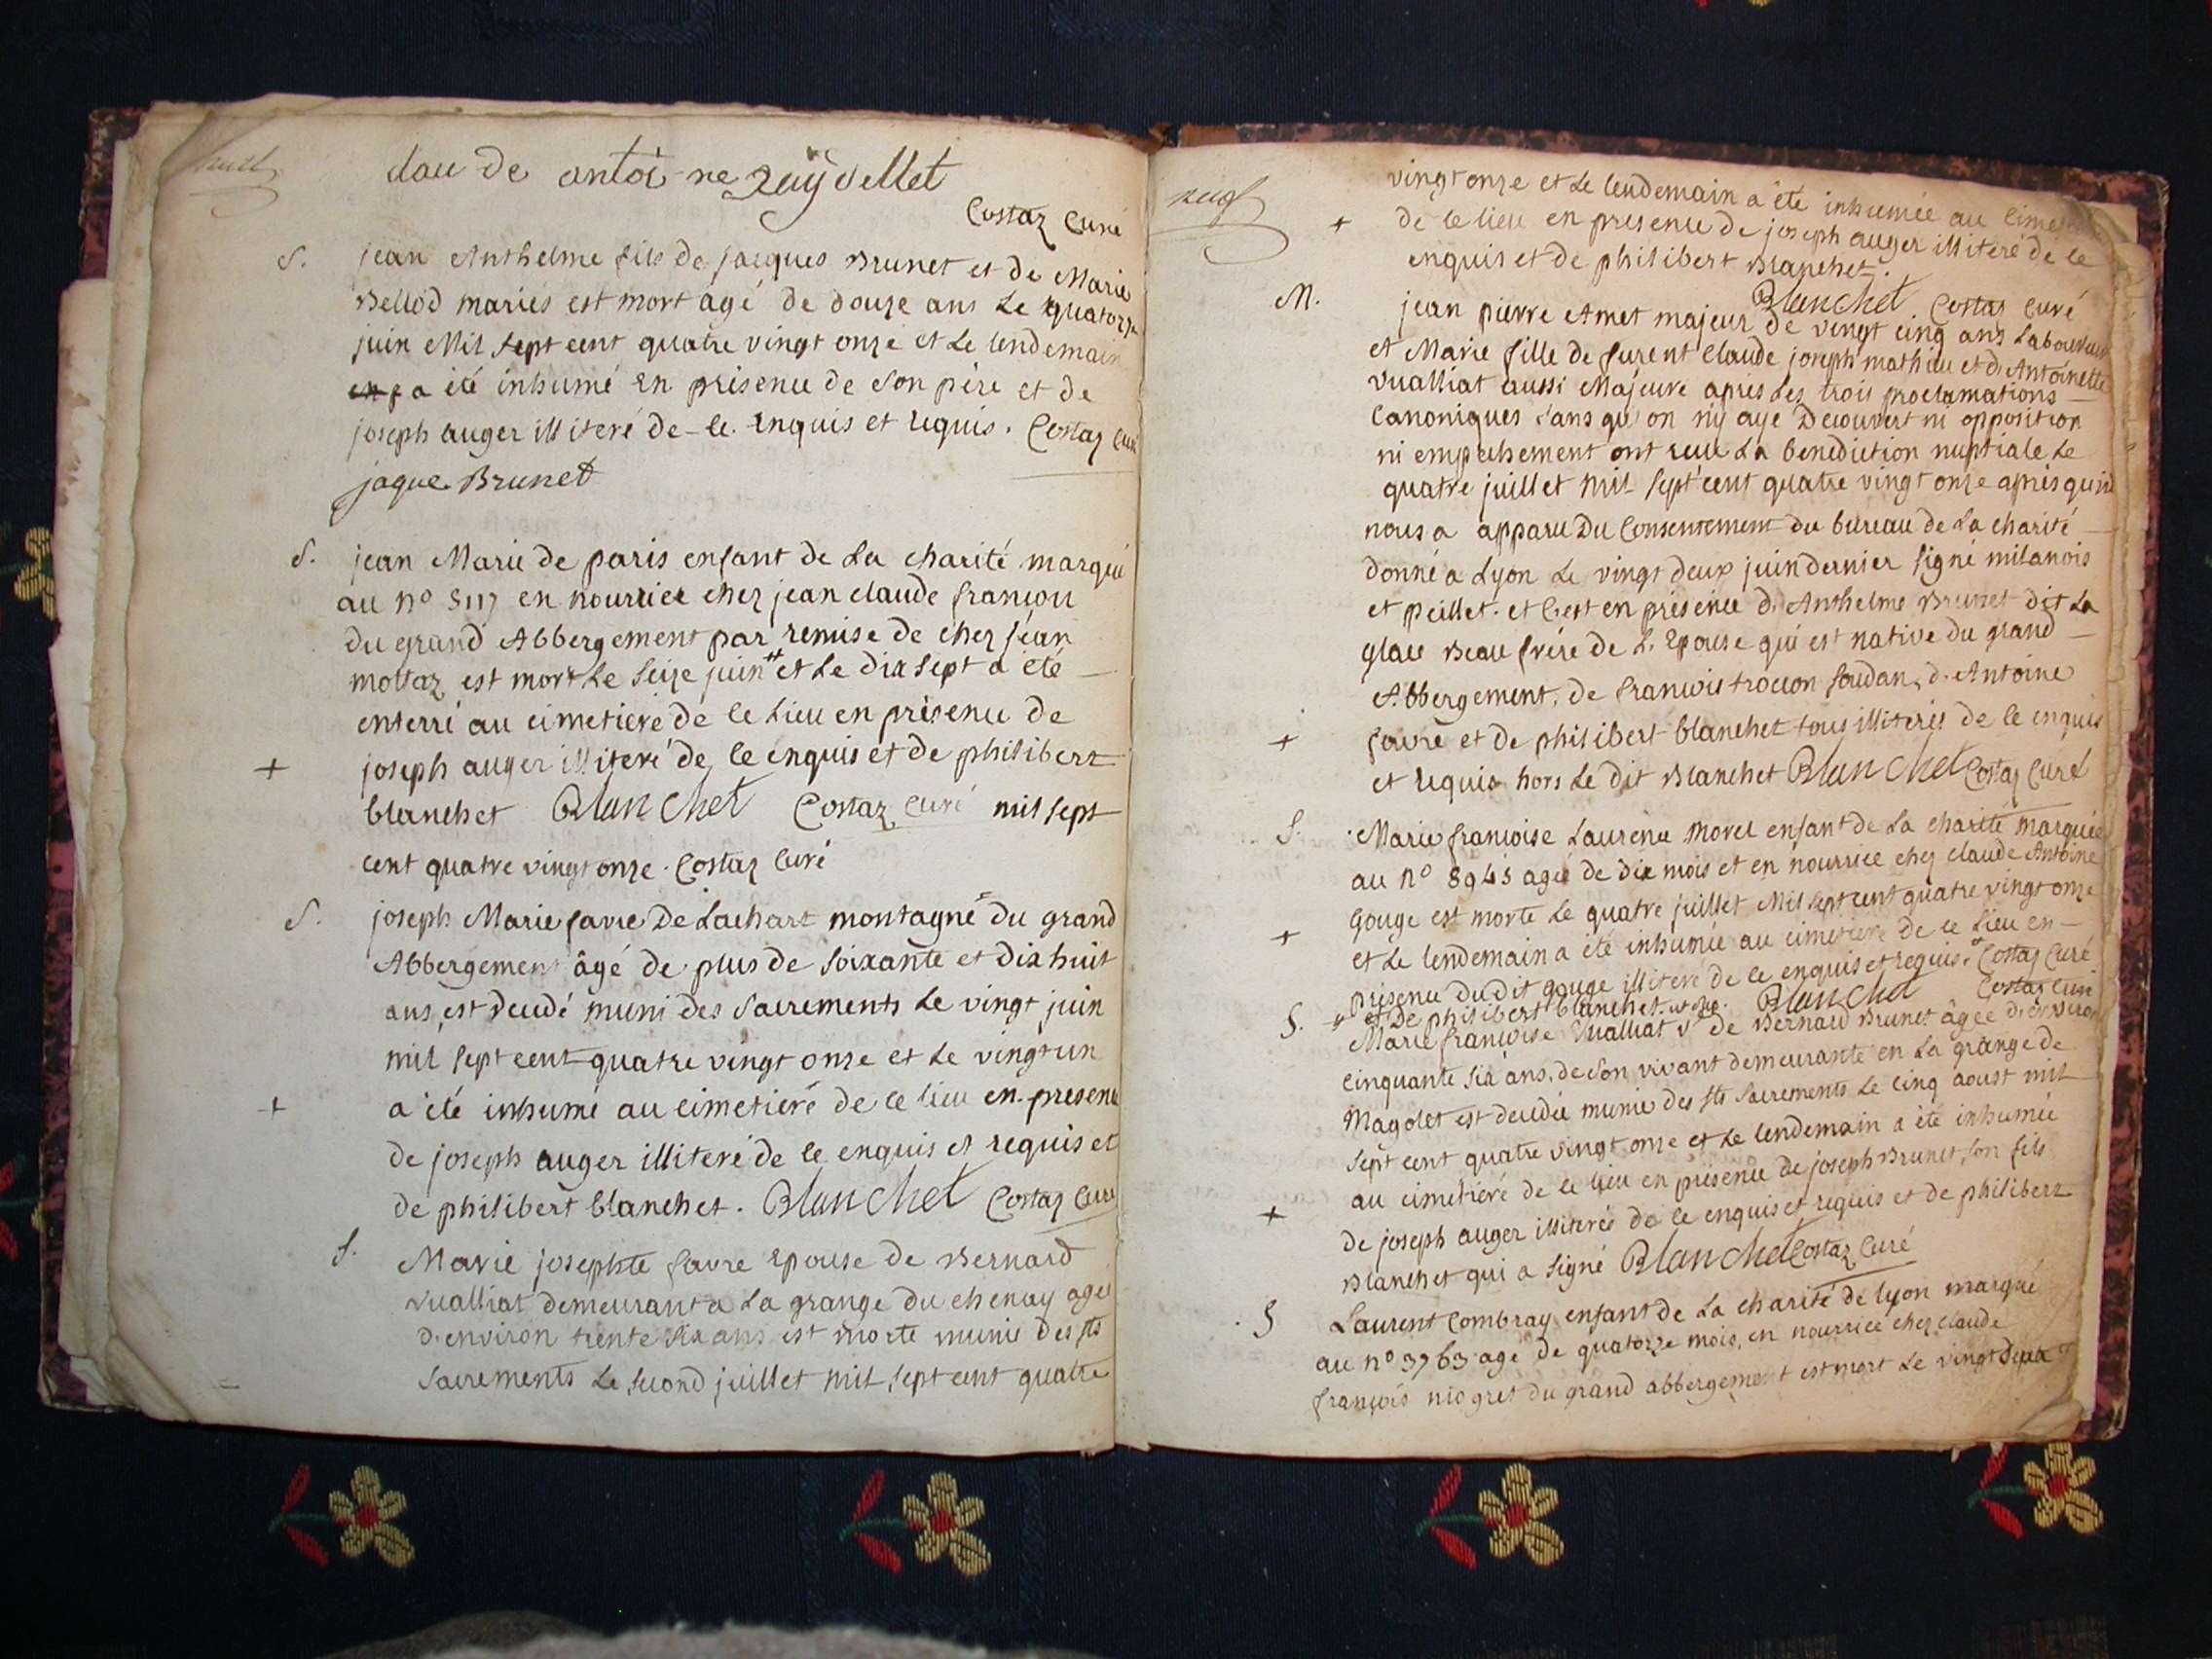 huit
dau de antoi-ne Rey vellet
Costaz Curé
S. jean Anthelme fils de jacques Brunet et de Marie
Bellod mariés est mort agé de douze ans Le quatorze
juin Mil Sept cent quatre vingt onze et Le lendemain
a été inhumé en présence de son père et de
joseph auger illiteré de-ce. enquis et requis. Costaz Curé
jaque Brunet
S. jean Marie de paris enfant de La charité marqué
au n° 5117 en nourrice chez jean claude françon
du grand Abbergement par remise de chez jean
mottaz est mort Le Seize juin # et Le dix sept a été
enterré au cimetiere de ce Lieu en présence de
+ joseph auger illiteré de ce enquis et de philibert
blanchet Blanchet Costaz Curé mil sept
cent quatre vingt onze. Costaz Curé
S. joseph Marie favre De Lachart montagne du grand
Abbergement âgé de plus de Soixante et dix huit
ans, est décédé muni des Sacrements Le vingt juin
mil sept cent quatre vingt onze et Le vingt un
+ a été inhumé au cimetiere de ce lieu en presence
de joseph auger illiteré de ce enquis et requis et
de philibert blanchet. Blanchet Costaz Curé
S. Marie josephte favre Epouse de Bernard
Vualliat demeurant a La grange du chenay agée
d'environ trente six ans est morte munie des sts
Sacrements Le second juillet mil sept cent quatre
neuf
vingt onze et Le lendemain a été inhumée au
+ de ce lieu en presence de joseph auger illiteré de ce
enquis et de philibert Blanchet.
Blanchet. Costaz Curé
M. jean pierre Amet majeur de vingt cinq ans Laboureur
et Marie fille de furent Claude joseph mathieu et d'Antoinette
Vualliat aussi Majeure apres Les trois proclamations
Canoniques sans qu'on n'y aye Decouvert ni opposition
ni empechement ont recu La benediction nuptiale Le
quatre juillet mil sept cent quatre vingt onze après qu'il
nous a apparu Du Consentement du bureau de La charité
donné a Lyon Le vingt deux juin dernier signé milanois
et peillet. et C'est en présence d'Anthelme Brunet dit La
glace Beau frère de L'Epouse qui est native du grand
Abbergement, de francois trocon soudan, d'Antoine
+ favre et de philibert blanchet tous illiterés de ce enquis
et requis hors Le dit Blanchet Blanchet Costaz Curé
S. Marie françoise Laurence Morel enfant de La charité marquée
au n° 8945 agée de dix mois et en nourrice chez claude Antoine
Gouge est morte Le quatre juillet Mil sept cent quatre vingt onze
+ et Le lendemain a été inhumée au cimetiere de ce Lieu en
présence Du dit gouge illiteré de ce enquis et requis. Costaz Curé
et De philibert blanchet. Blanchet Costaz Curé
S. Marie françoise Vualliat Ve de Bernard Brunet âgée d'environ
cinquante six ans, de son vivant demeurante en La grange de
Magolet est decedée munie des sts Sacrements Le cinq aoust mil
sept cent quatre vingt onze et Le lendemain a été inhumée
au cimetiere de ce lieu en présence de joseph Brunet, son fils
+ de joseph auger illiterés de ce enquis et requis et de philibert
Blanchet qui a signé Blanchet Costaz Curé
S Laurent Combray enfant de La charité de lyon marqué
au n° 3763 agé de quatorze mois, en nourrice chez claude
françois niogret du grand abbergement est mort Le vingt deux